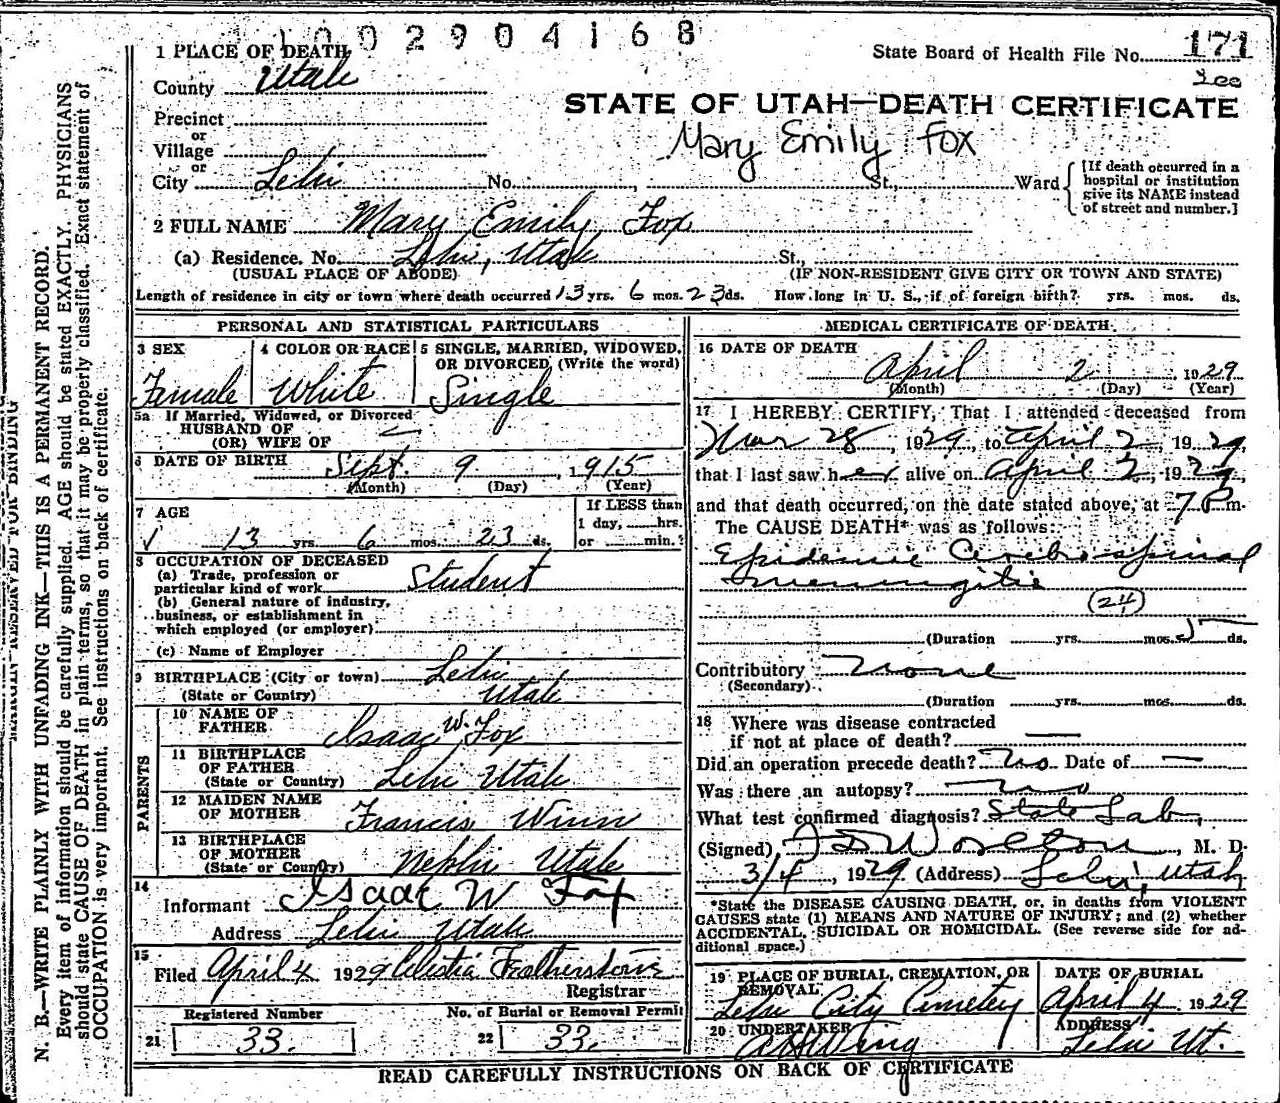 1002904168
1 PLACE OF DEATH
State Board of Health File No. 171
County Utah
200
STATE OF UTAH—DEATH CERTIFICATE
Precinct
or
Village
Mary Emily Fox
or
City Lehi No. , St., Ward
[If death occurred in a
hospital or institution
give its NAME instead
of street and number.]
2 FULL NAME Mary Emily Fox
(a) Residence. No. Lehi, Utah St.,
(USUAL PLACE OF ABODE) (IF NON-RESIDENT GIVE CITY OR TOWN AND STATE)
Length of residence in city or town where death occurred 13 yrs. 6 mos. 23 ds. How long in U. S., if of foreign birth? yrs. mos. ds.
PERSONAL AND STATISTICAL PARTICULARS
3 SEX 4 COLOR OR RACE 5 SINGLE, MARRIED, WIDOWED,
OR DIVORCED (Write the word)
Female White Single
5a If Married, Widowed, or Divorced
HUSBAND OF
(OR) WIFE OF
6 DATE OF BIRTH Sept. 9, 1915
(Month) (Day) (Year)
7 AGE If LESS than
1 day, hrs.
13 yrs. 6 mos. 23 ds. or min.?
8 OCCUPATION OF DECEASED
(a) Trade, profession or
particular kind of work Student
(b) General nature of industry,
business, or establishment in
which employed (or employer)
(c) Name of Employer
9 BIRTHPLACE (City or town) Lehi
(State or Country) Utah
PARENTS
10 NAME OF
FATHER Isaac W. Fox
11 BIRTHPLACE
OF FATHER
(State or Country) Lehi Utah
12 MAIDEN NAME
OF MOTHER Francis Winn
13 BIRTHPLACE
OF MOTHER
(State or Country) Nephi Utah
14
Informant Isaac W Fox
Address Lehi Utah
15
Filed April 4 1929 Celestia Featherstone
Registrar
Registered Number No. of Burial or Removal Permit
21 33. 22 33.
MEDICAL CERTIFICATE OF DEATH
16 DATE OF DEATH
April 2 1929
(Month) (Day) (Year)
17 I HEREBY CERTIFY, That I attended deceased from
Mar 28, 1929, to April 2, 1929,
that I last saw her alive on April 2, 1929,
and that death occurred, on the date stated above, at 7 P m.
The CAUSE DEATH* was as follows:
Epidemic Cerebrospinal
meningitis
(24)
(Duration yrs. mos. 5 ds.
Contributory None
(Secondary)
(Duration yrs. mos. ds.
18 Where was disease contracted
if not at place of death? —
Did an operation precede death? No Date of —
Was there an autopsy? No
What test confirmed diagnosis? State Lab.
(Signed) , M. D.
3/4, 1929 (Address) Lehi, Utah
*State the DISEASE CAUSING DEATH, or, in deaths from VIOLENT
CAUSES state (1) MEANS AND NATURE OF INJURY; and (2) whether
ACCIDENTAL, SUICIDAL OR HOMICIDAL. (See reverse side for ad-
ditional space.)
19 PLACE OF BURIAL, CREMATION, OR
REMOVAL DATE OF BURIAL
Lehi City Cemetery April 4 1929
20 UNDERTAKER ADDRESS
A H Wing Lehi Ut.
READ CAREFULLY INSTRUCTIONS ON BACK OF CERTIFICATE
N. B.—WRITE PLAINLY WITH UNFADING INK—THIS IS A PERMANENT RECORD.
Every item of information should be carefully supplied. AGE should be stated EXACTLY. PHYSICIANS
should state CAUSE OF DEATH in plain terms, so that it may be properly classified. Exact statement of
OCCUPATION is very important. See instructions on back of certificate.